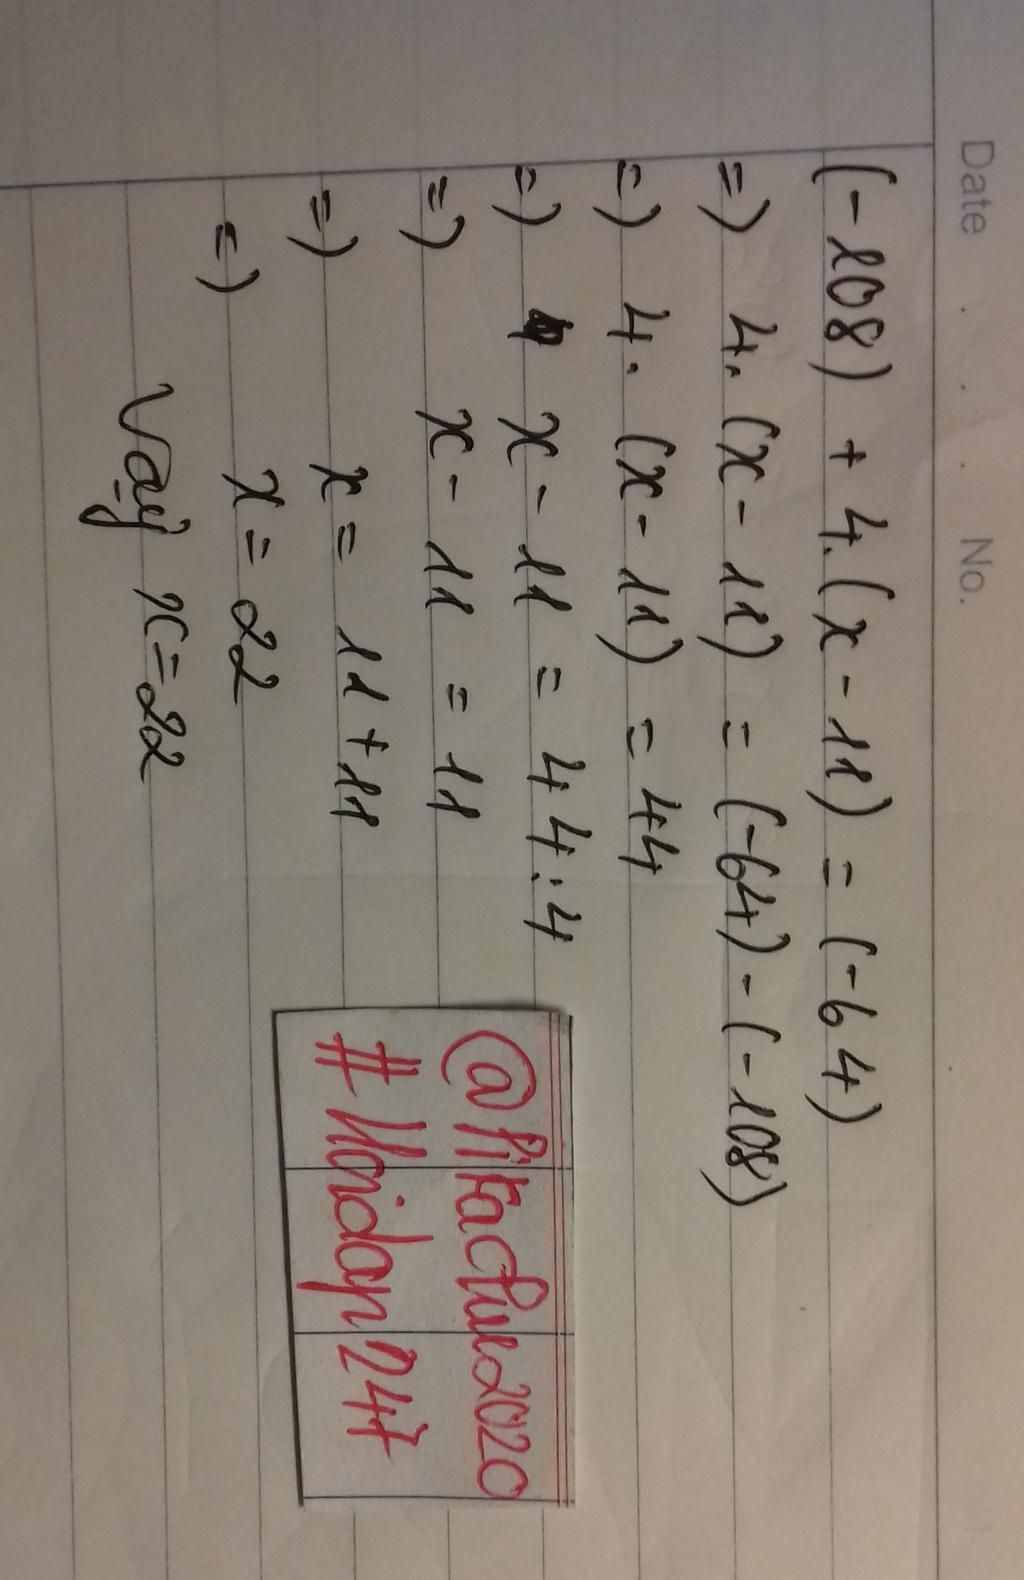 Date . . . No.
(-108) + 4.(x - 11) = (-64)
=) 4. (x - 11) = (-64) - (-108)
=) 4. (x - 11) = 44
=) x - 11 = 44:4
=) x - 11 = 11
=) x = 11 + 11
=) x = 22
Vậy x = 22
@Pikachue2020
#Hoidap247